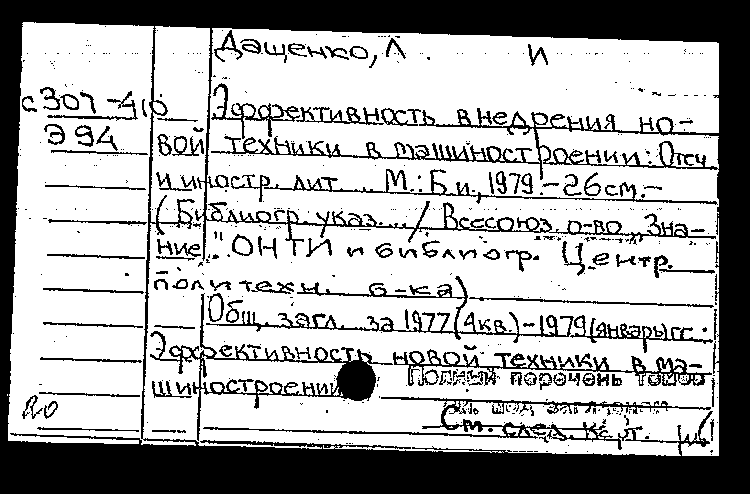 Дащенко, Л. И
с307-410 Эффективность внедрения но-
Э94 вой техники в машиностроении: Отеч.
и иностр. лит... М.: Б.и., 1979.-26см.-
(Библиогр. указ.../ Всесоюз. о-во „Зна-
ние". ОНТИ и библиогр. Центр.
политехн. б-ка).
Общ. загл. за 1977(4кв.)-1979(январь)гг.:
Эффективность новой техники в ма-
шиностроении
Полный перечень томов
см. под заглавием
См. след. карт.